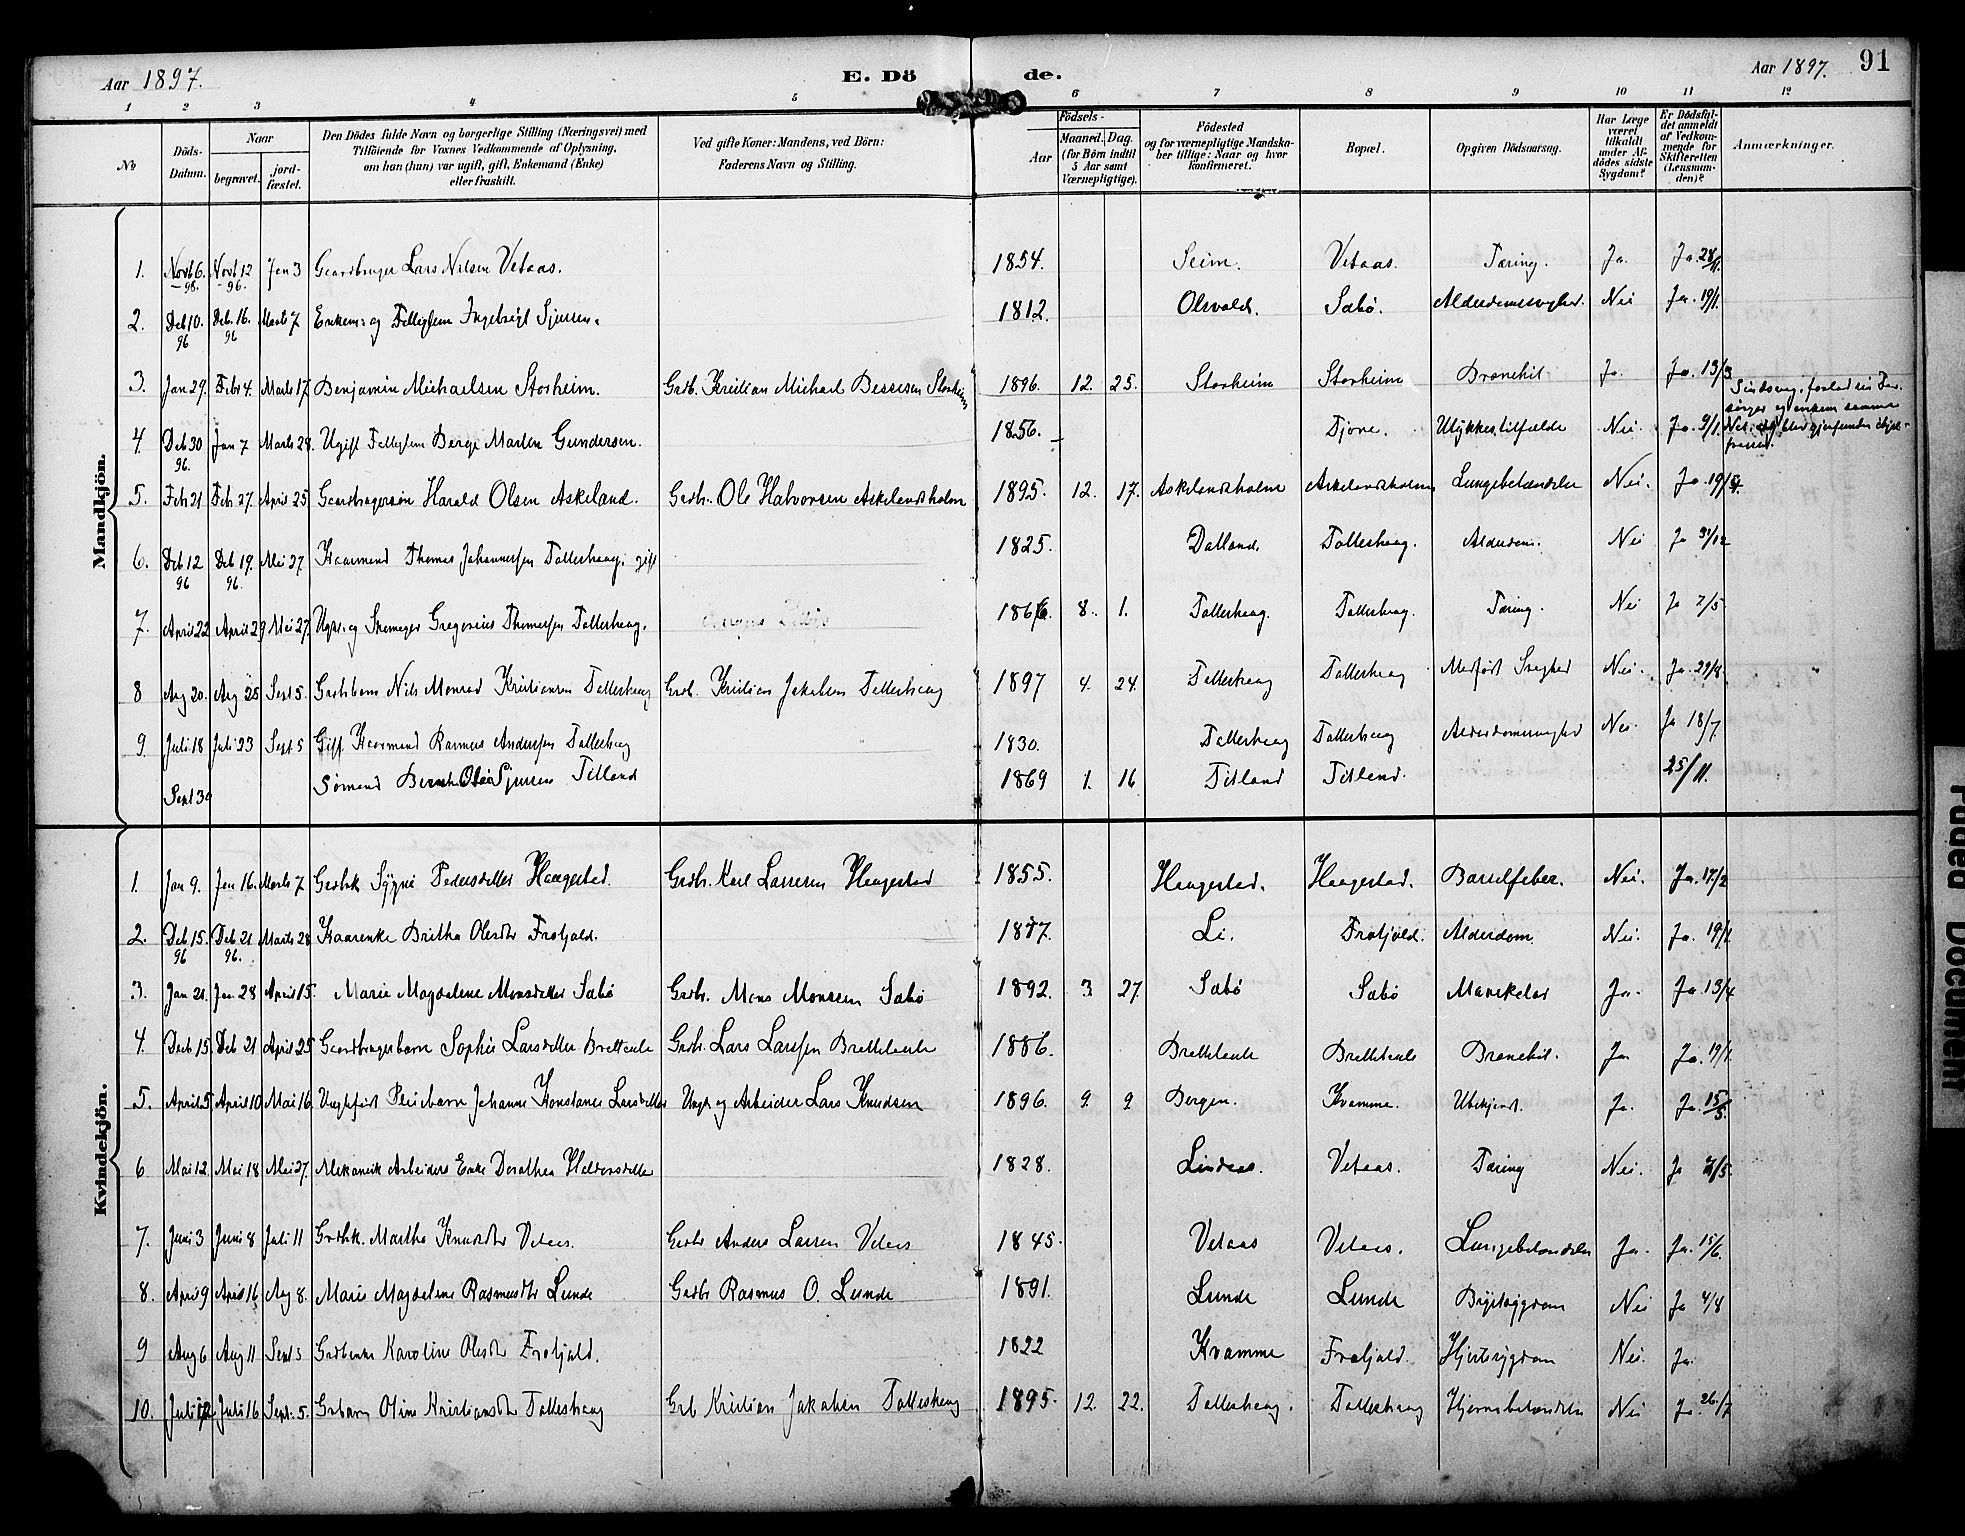 Aar 1897. E. Dö de. Aar 1897. 91
1 2 3 4 5 6 7 8 9 10 11 12
No
Döds-Datum.
Naar
begravet.
jord-fæstet.
Den Dödes fulde Navn og borgerlige Stilling (Næringsvei) med
Tilföiende for Voxnes Vedkommende af Oplysning,
om han (hun) var ugift, gift, Enkemand (Enke)
eller fraskilt.
Ved gifte Koner: Mandens, ved Börn:
Faderens Navn og Stilling.
Födsels-
Aar
Maaned. Dag.
(for Börn indtil
5 Aar samt
Værnepligtige).
Födested
og for værnepligtige Mandska-
ber tillige: Naar og hvor
konfirmeret.
Bopæl.
Opgiven Dödsaarsag.
Har Læge
været
tilkaldt
under Af-
dödes sidste
Sygdom?
Er Dödsfal-
det anmeldt
af Vedkom-
mende for
Skifteretten
(Lensman-
den)?
Anmærkninger.
Mandkjön.
1. Novb 6. 96. Novb 12 96. Jan 3 Gaardbruger Lars Nilsen Vetaas. 1854. Seim. Vetaas. Tæring. Ja. Ja. 28/11.
2. Deb 10. 96 Deb. 16. 96 Marts 7 Enkem: og Ingebrigt Sjursen. 1812. Sæbö. Nei Ja. 19/1.
3. Jan 29. Febr 4. Marts 17 Benjamin Michaelsen Storheim. Grdb. Kristian Michael Storheim 1896. 12. 25. Storheim Storheim Bronchit Ja. Ja. 13/3
4. Deb 30 96. Jan 7 Marts 28. Ugift Berge Martin Gundersen. 1856. Ulykkestilfælde Nei. Ja. 9/1.
5. Feb 21 Feb 27. April 25 Gaardbrugersøn Harald Olsen Askeland. Grdbr. Ole Halvorsen Askelandsholm 1895. 12. 17. Askelandsholm Askelandsholm Lungebetændelse Nei. Ja. 19/4.
6. Deb 12 96 Deb 19. 96. Mai 27. Kaarmand Thomas Johannessen Tolleshaug. gift 1825. Dalland. Tolleshaug. Alderdom. Nei Ja 31/12
7. April 22 April 29 Mai 27. Ungk. og Skomager Gregorius Thomassen Tolleshaug. 1866 8. 1. Tolleshaug. Tolleshaug. Tæring. Nei Ja 7/5.
8 Aug 20. Aug 25 Sept 5. Grdbbarn Nils Monrad Kristiansen Tolleshaug Grdb. Kristian Jakobsen Tolleshaug 1897 4. 24. Tolleshaug Tolleshaug Medfødt Svaghed Nei. Ja. 29/8.
9. Juli 18 Juli 23 Sept. 5 Gift Kaarmand Rasmus Andersen Tolleshaug 1830. Tolleshaug Tolleshaug Alderdomssvaghed Nei. Ja 18/7
Sept 30 Sømand Olai Sjursen Titland 1869 1. 16 Titland Titland. 25/11.
Kvindekjön.
1. Jan 9. Jan 16. Marts 7 Grdbk Sygni Pedersdatter Haugestad. Grdbr. Karl Larsen Haugestad 1855. Haugestad. Haugestad. Barselfeber. Nei. Ja. 17/2
2. Deb 15. 96 Deb 21 96. Marts 28 Kaarenke Britha Olesdtr Frotjold. 1817. Li. Frotjold. Alderdom. Nei. Ja. 19/1.
3. Jan 21. Jan 28 April 15. Marie Magdalene Monsdatter Sæbö Grdbr. Mons Monsen Sæbö 1892. 3. 27. Sæbö Sæbö Ja. Ja. 13/4
4. Decb 15. Deb 21 April 25 Gaardbrugerbarn Sophie Larsdatter Grdb. Lars Larssen 1886. Bronchit. Ja. Ja. 19/1.
5. April 5 April 10 Mai 16 Pleiebarn Johanne Konstance Larsdatter Ungk og Arbeider Lars Knudsen 1896. 9. 9 Bergen. Kvamme. Ubekjendt. Ja. Ja. 15/5.
6 Mai 12 Mai 18 Mai 27. Mekanisk Arbeiders Enke Dorothea 1828. Lindaas. Vetaas. Tæring Nei. Ja 5.
7. Juni 3 Juni 8 Juli 11 Grdbk. Martha Knudsdtr Vetaas. Grdbr Anders Larsen Vetaas 1845. Vetaas Vetaas. Lungebetændelse Ja. Ja. 15/6.
8. April 9 April 16 Aug 8. Marie Magdalene Rasmusdtr Lunde Grdbr Rasmus O. Lunde 1891. Lunde Lunde Brystsygdom Nei Ja 4/8
9 Aug 6 Aug 11 Sept 5 Grdbenke Karoline Olesdtr Frotjold. 1822 Kvamme Frotjold. Hjertesygdom Nei. Ja.
10. Juli 12 Juli 16 Sept. 5. Grbarn Oline Kristiansdtr Tolleshaug Grb Kristian Jakobsen Tolleshaug 1895. 12. 22. Tolleshaug. Tolleshaug Hjernebetændelse Nei Ja. 26/7
Faded Document